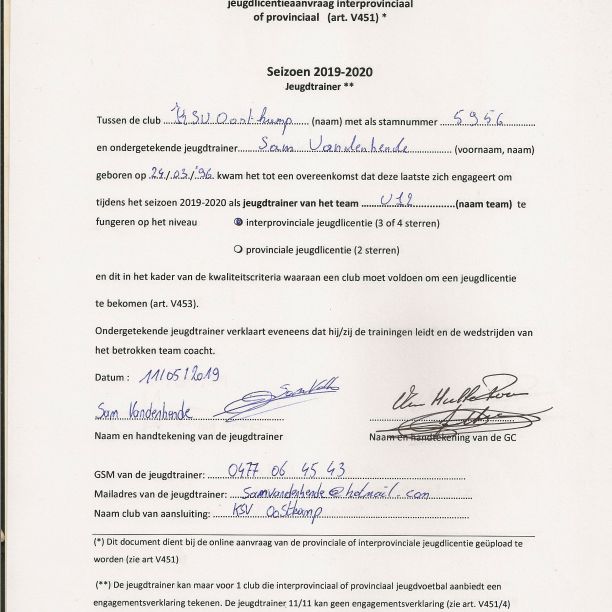 jeugdlicentieaanvraag interprovinciaal
of provinciaal (art. V451) *
Seizoen 2019-2020
Jeugdtrainer **
Tussen de club KSV Oostkamp (naam) met als stamnummer 5956
en ondergetekende jeugdtrainer Sam Vandenhende (voornaam, naam)
geboren op 24/03/'96 kwam het tot een overeenkomst dat deze laatste zich engageert om
tijdens het seizoen 2019-2020 als jeugdtrainer van het team U12 (naam team) te
fungeren op het niveau interprovinciale jeugdlicentie (3 of 4 sterren)
provinciale jeugdlicentie (2 sterren)
en dit in het kader van de kwaliteitscriteria waaraan een club moet voldoen om een jeugdlicentie
te bekomen (art. V453).
Ondergetekende jeugdtrainer verklaart eveneens dat hij/zij de trainingen leidt en de wedstrijden van
het betrokken team coacht.
Datum : 11/05/2019
Sam Vandenhende
Naam en handtekening van de jeugdtrainer Naam en handtekening van de GC
GSM van de jeugdtrainer: 0477 06 45 43
Mailadres van de jeugdtrainer: Samvandenhende@hotmail.com
Naam club van aansluiting: KSV Oostkamp
(*) Dit document dient bij de online aanvraag van de provinciale of interprovinciale jeugdlicentie geüpload te
worden (zie art V451)
(**) De jeugdtrainer kan maar voor 1 club die interprovinciaal of provinciaal jeugdvoetbal aanbiedt een
engagementsverklaring tekenen. De jeugdtrainer 11/11 kan geen engagementsverklaring (zie art. V451/4)